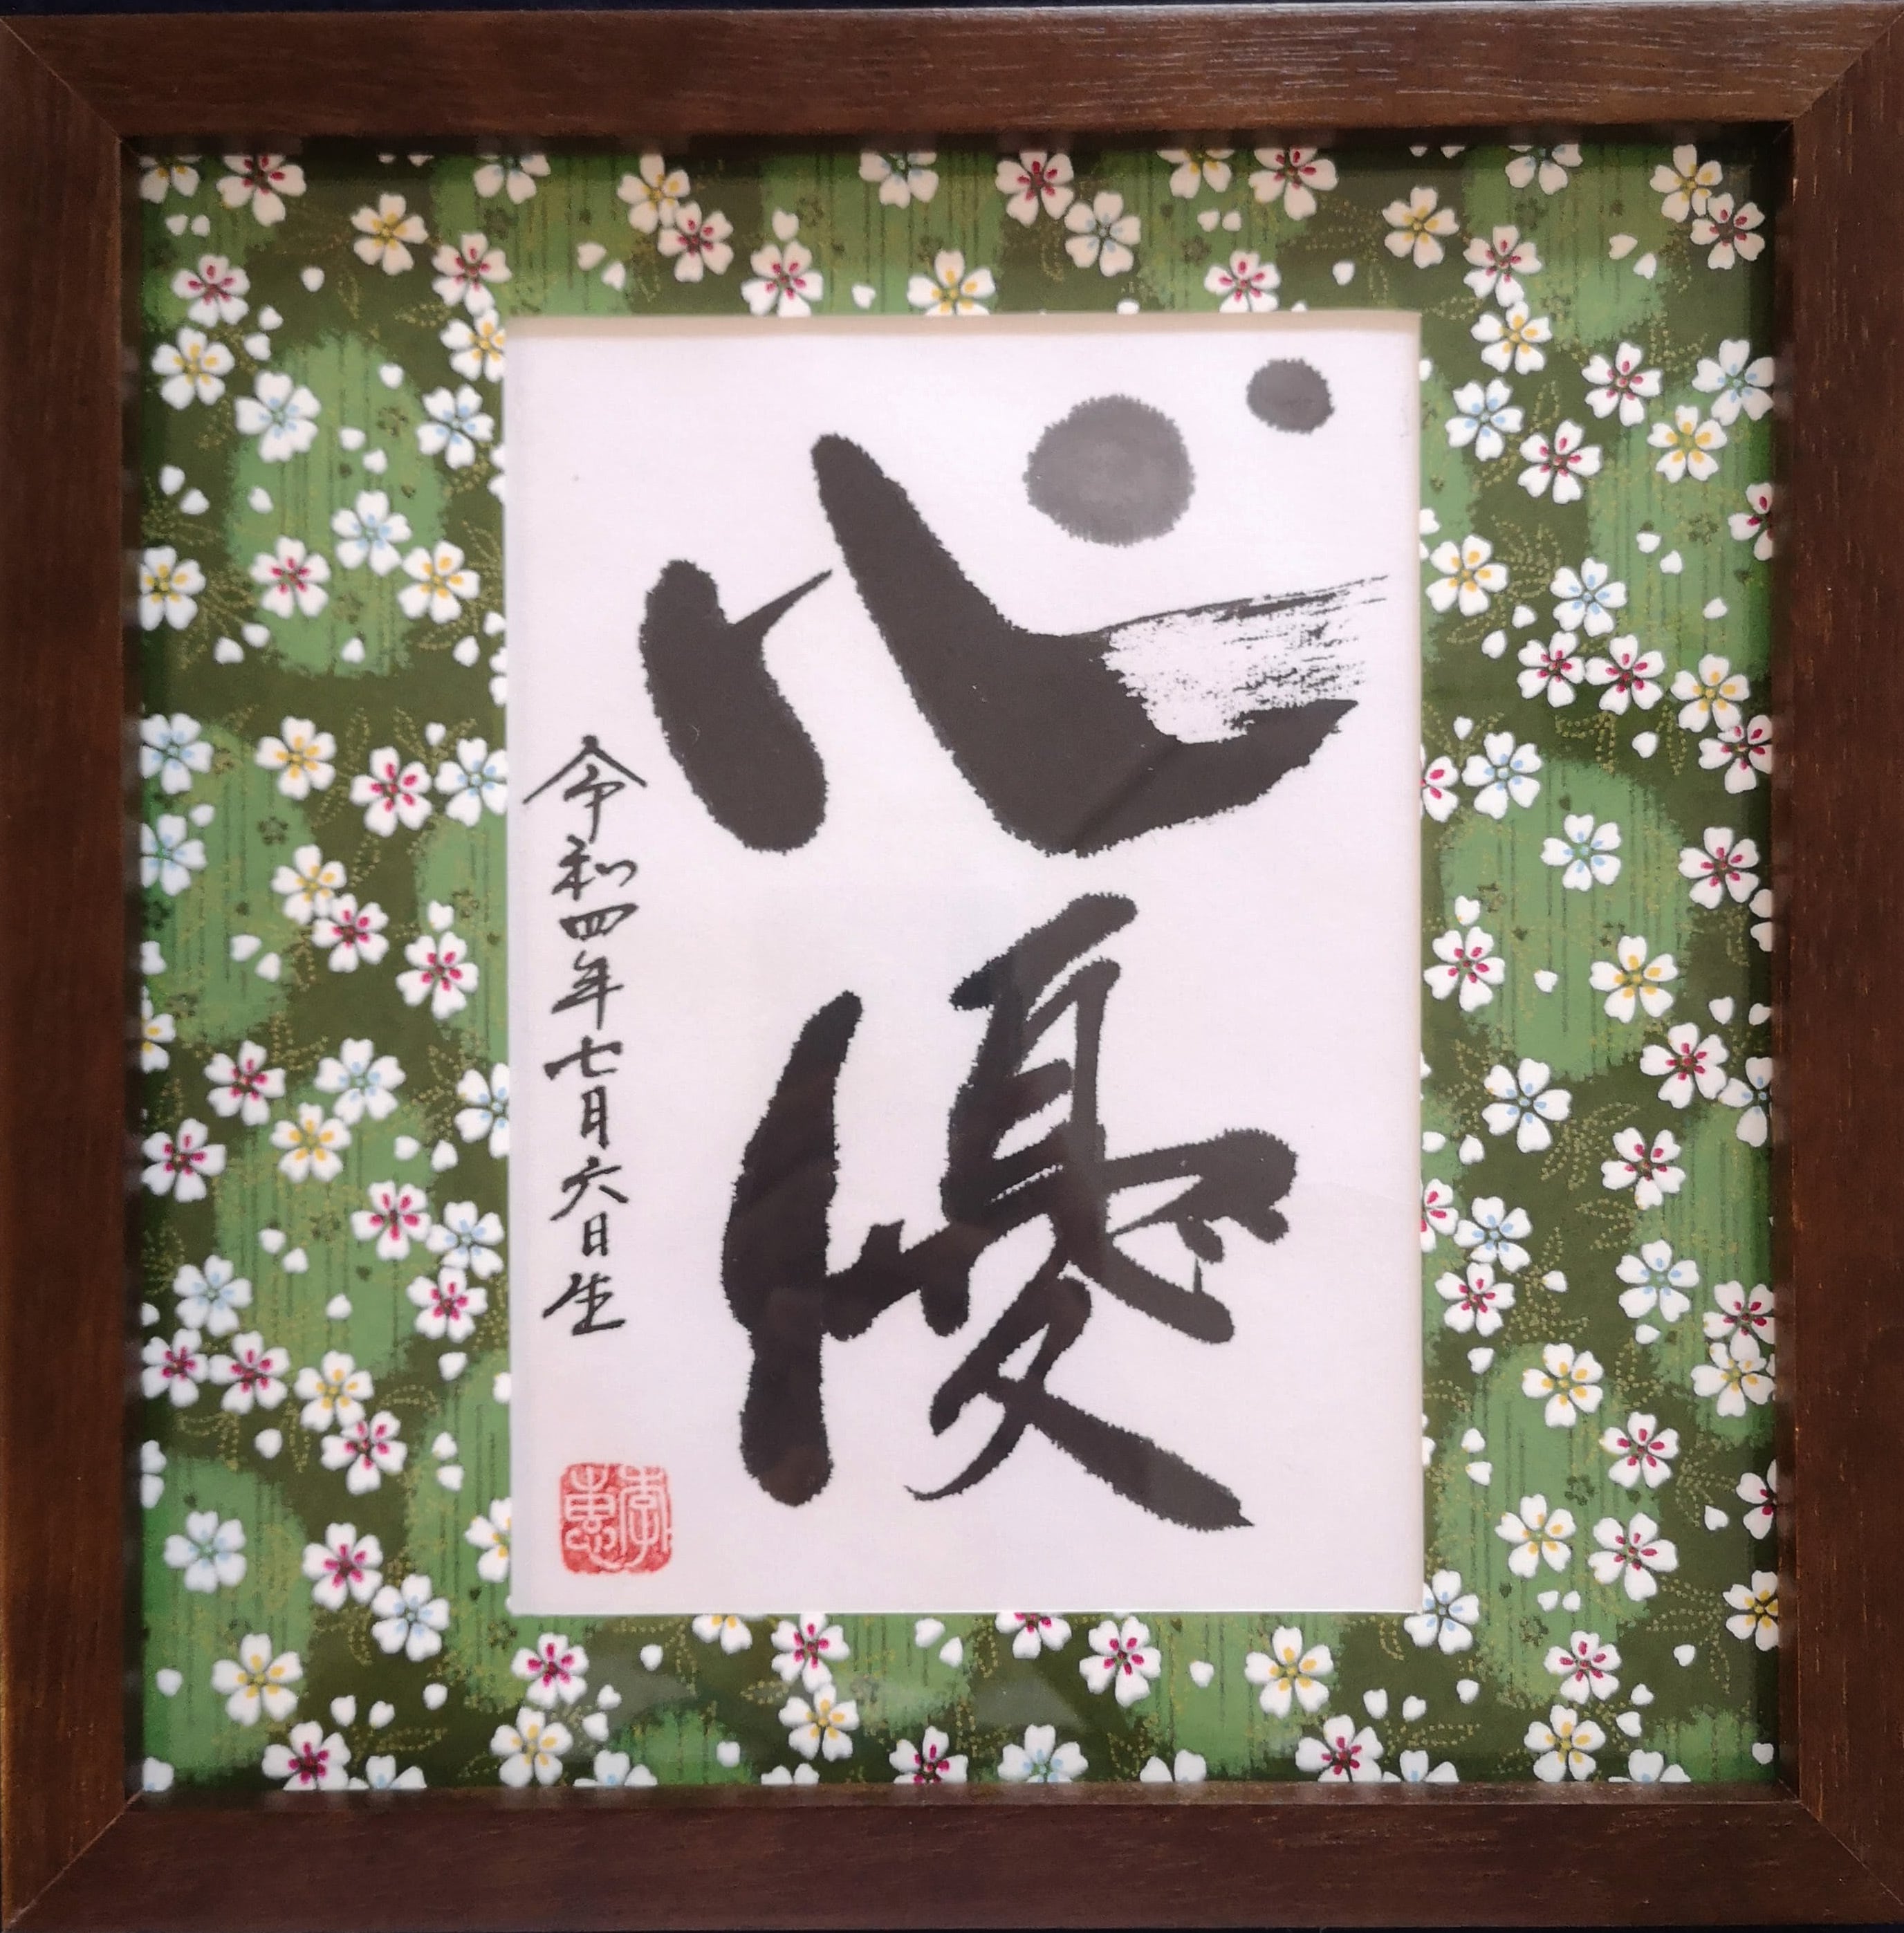 心優
令和四年七月六日生